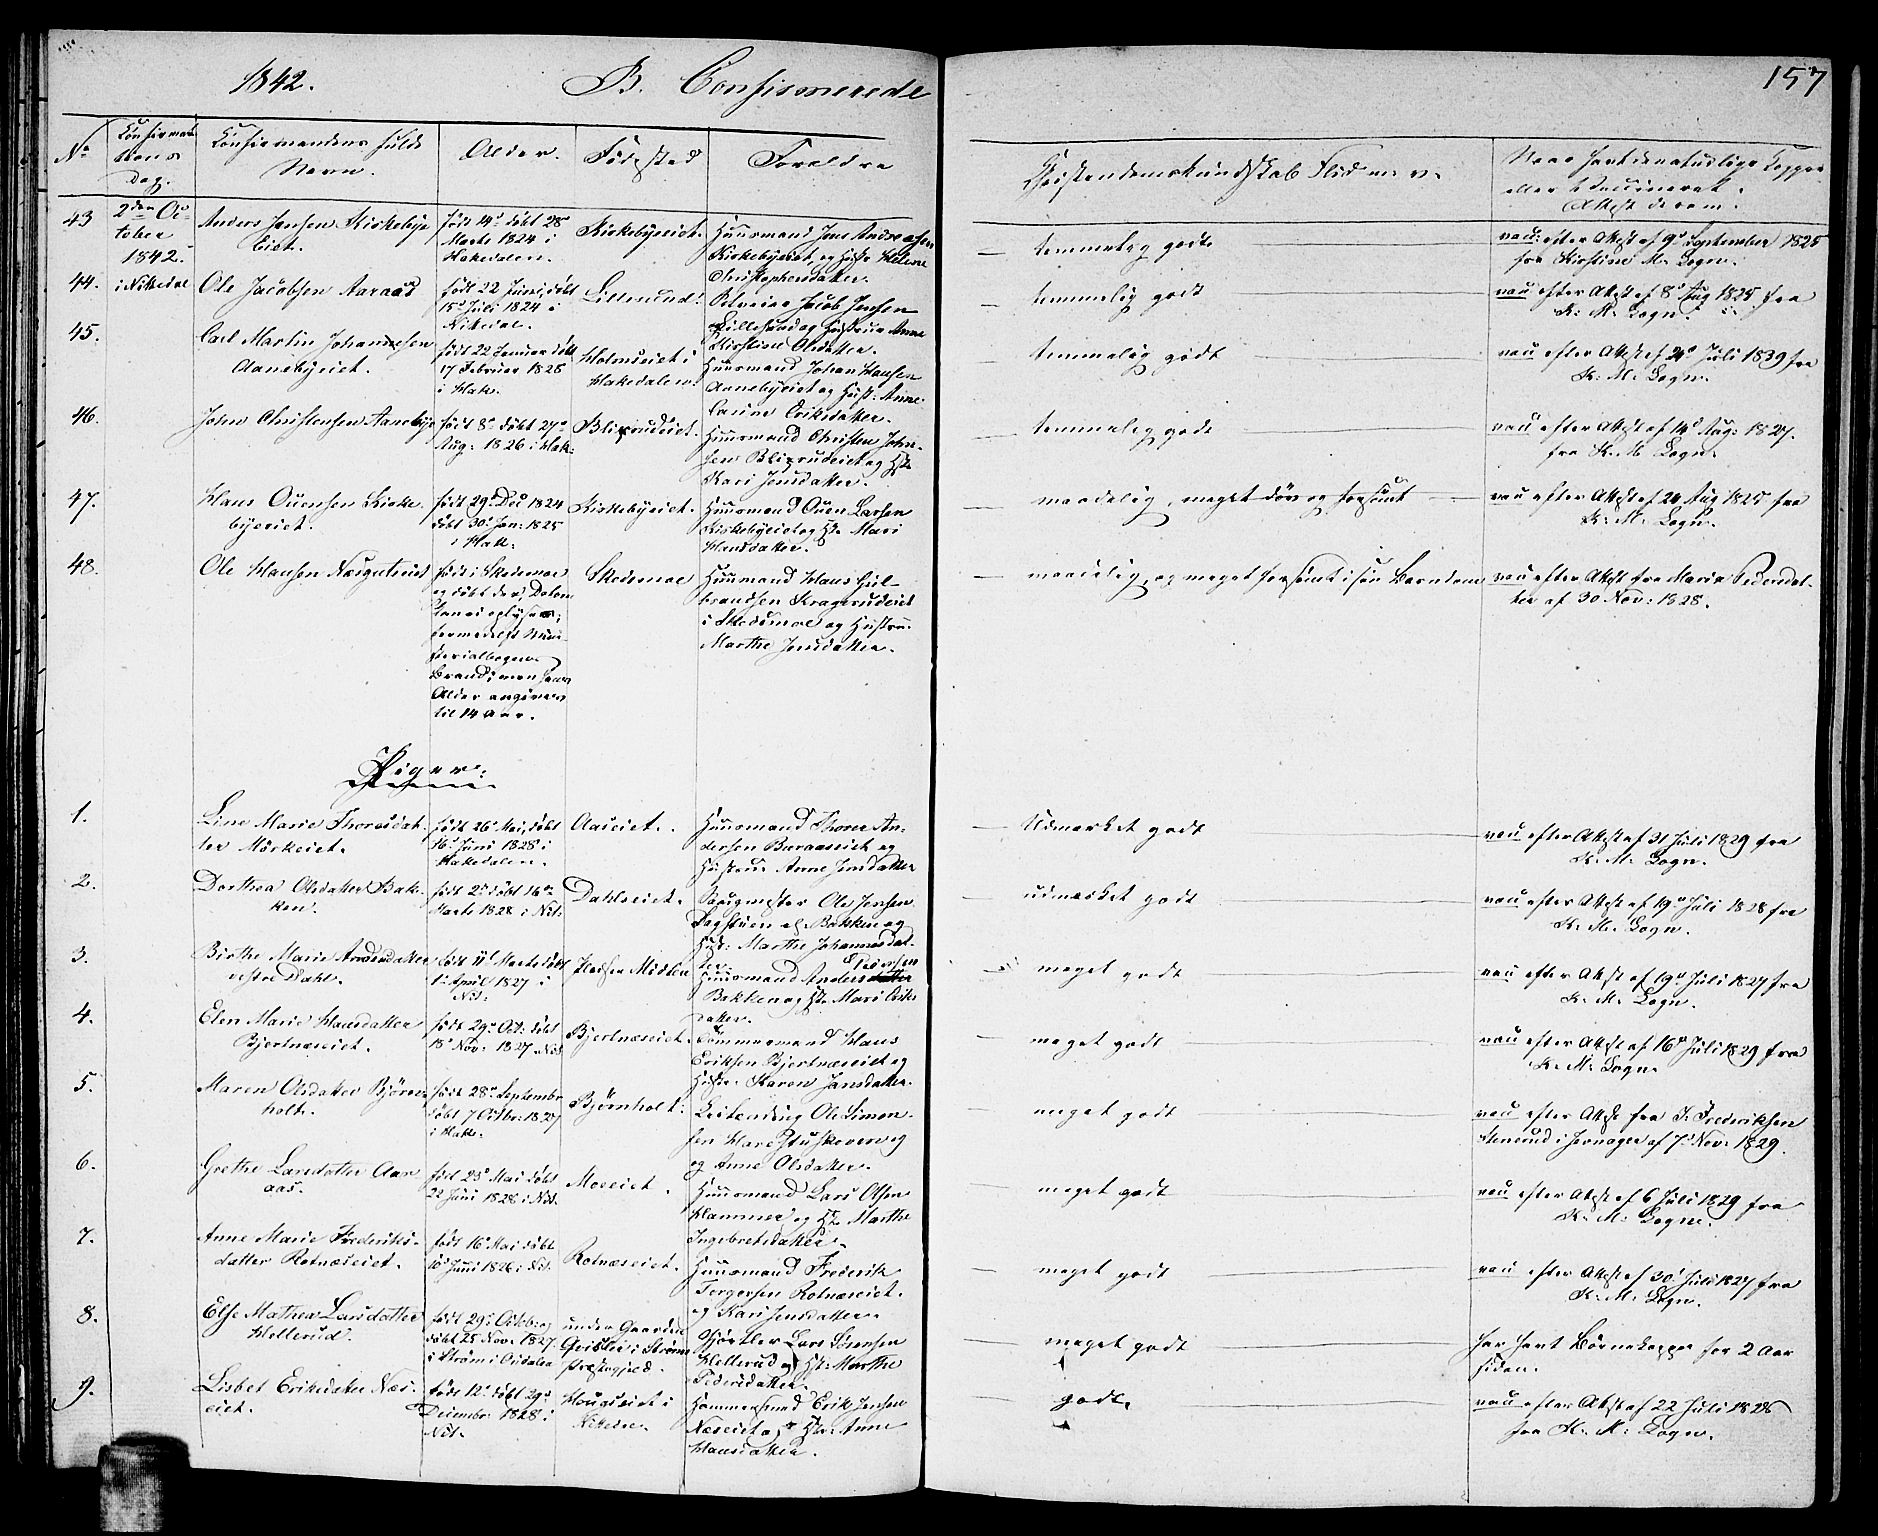 1842.
B. Confirmerede
157
No
Confirmations Dag.
Confirmandens fulde Navn.
Alder.
Fødested
Forældre
Christendomskundskab Flid m. v.
Naar havt de naturlige Kopper
eller Vaccineret.
Attest derom.
43
2den October
1842.
i Nitedal
Anders Jensen Kirkebye
Eiet.
født 14de døbt 28de
Marts 1824 i
Hakedalen.
Kirkebyeiet.
Huusmand Jens Andreasen
Kirkebyeiet og Hustr Helene
Christophersdatter.
temmelig godt
vac: efter Attest af 9de September 1825
fra Kirstine M: Bogn.
44.
Ole Jacobsen Aaraas
født 22 Juni, døbt
18de Juli 1824 i
Nitedal.
Lillesund.
Jacob Jensen
Lillesund og Hustrue Anne
Kirstine Olsdatter.
temmelig godt
vac efter Attest af 8de Aug 1825 fra
K: M: Bogn.
45.
Carl Martin Johannesen
Aanebyeiet.
født 22 Januar døbt
17 Februar 1828
i Hak.
Holmseiet i
Hakedalen.
Huusmand Johan Hansen
Aanebyeiet og Hust: Anne
Laurine Eriksdatter.
temmelig godt
vac efter Attest af 24de Juli 1839 fra
K: M: Bogn.
46.
John Christensen Aanebye
født 8de døbt 27de
Aug: 1826 i Hak:
Blixrudeiet.
Huusmand Christen John-
sen Blixrudeiet og Hst:
Kari Jensdatter.
temmelig godt
vac efter Attest af 14de Aug: 1827.
fra K. M. Bogn.
47.
Hans Ouensen Kirke
byeeiet.
født 29de Dec 1824
døbt 30de Jan: 1825
i Hak:
Kirkebyeiet.
Huusmand Ouen Larsen
Kirkebyeiet og Hst: Mari
Hansdatter.
maadelig, meget døv og forsømt
vac efter Attest af 24 Aug 1825 fra
K: M: Bogn.
48.
Ole Hansen Næsgutrud
født i Skedsmoe
og døbt der; Datum
kan ei oplyses
formedelst Mini-
sterialbogens
Brand; men hans
Alder angives
til 14 Aar.
Skedsmoe
Huusmand Hans Gul-
brandsen Kragerudeiet
i Skedsmoe og Hustrue
Marthe Jensdatter.
maadelig, og meget forsømt i sin Barndom
vac efter Attest fra Maria Pedersdat-
ter af 30 Nov: 1828.
Piger.
1.
Line Marie Thoresdat-
ter Mørkeiet.
født 26de Mai, døbt
16de Juni 1828 i
Hakedalen.
Aaseiet.
Huusmand Thore An-
dersen Buraaseiet og
Hustrue Anne Jensdatter
Udmærket godt
vac efter Attest af 31 Juli 1829 fra
K: M: Bogn.
2.
Dorthea Olsdatter Bak-
ken.
født 2de døbt 16de
Marts 1828 i Nit.
Dahlseiet.
Ole Jensen
Dagstuen el: Bakken og
Hust: Marthe Johannesdat-
ter.
udmærket godt
vac efter Attest af 19de Juli 1828 fra
K: M: Bogn.
3.
Birthe Marie Andersdatter
vestre Dahl.
født 11te Marts døbt
1ste April 1827 i
Nit:
Huusmand Anders Pedersen
Bakken og Hst: Mari
datter.
meget godt
vac efter Attest af 19de Juli 1827 fra
K: M: Bogn.
4.
Elen Marie Hansdatter
Bjertnæseiet.
født 29de Oct: døbt
18de Nov: 1827 Nit
Bjertnæseiet.
Tømmermand Hans
Eriksen Bjertnæseiet og
Hustr: Karen Jansdatter.
meget godt
vac efter Attest af 16de Juli 1829 fra
K: M: Bogn.
5.
Maren Olsdatter Bjørn-
holt.
født 28de September
døbt 7 Octbr: 1827
i Hakk.
Bjørnholt.
Leilending Ole Simon-
sen Hareftuskeveen og
og Anne Olsdatter.
meget godt
vac efter Attest fra J. Frederiksen
Stenrud i Jevnager af 7de Nov: 1829.
6.
Grethe Larsdatter Aar-
aas.
født 23de Mai døbt
22 Juni 1828 i Nit.
Moseiet.
Huusmand Lars Olsen
Hammer og Hst: Marthe
Ingebretsdatter.
meget godt
vac efter Attest af 6 Juli 1829 fra
K: M: Bogn.
7.
Anne Marie Frederiks-
datter Rotnæseiet.
født 16de Mai døbt
Juni 1826 i Nit.
Rotnæseiet.
Huusmand Frederik
Torgersen Rotnæseiet.
og Kari Jensdatter.
meget godt
vac efter Attest af 30te Juli 1827 fra
K: M: Bogn.
8.
Else Mathea Larsdatter
Hellerud.
født 29de October
døbt 25 Nov: 1827
i Strøm i Osdalen
under Gaarden
i Strøms
Præstegjeld.
Lars Sørensen
Hellerud og Hst: Marthe
Pedersdatter.
meget godt
har havt Børnekopper for 2 Aar
siden.
9.
Lisbet Eriksdatter Næs-
eiet.
født 12te døbt 29de
December 1828 i
Nit.
Haugseiet i
Nitedal.
Hammersmed Erik Jensen
Næseiet og Hst: Anne
Hansdatter.
godt.
vac efter Attest af 22 Juli 1828
fra K: M: Bogn.